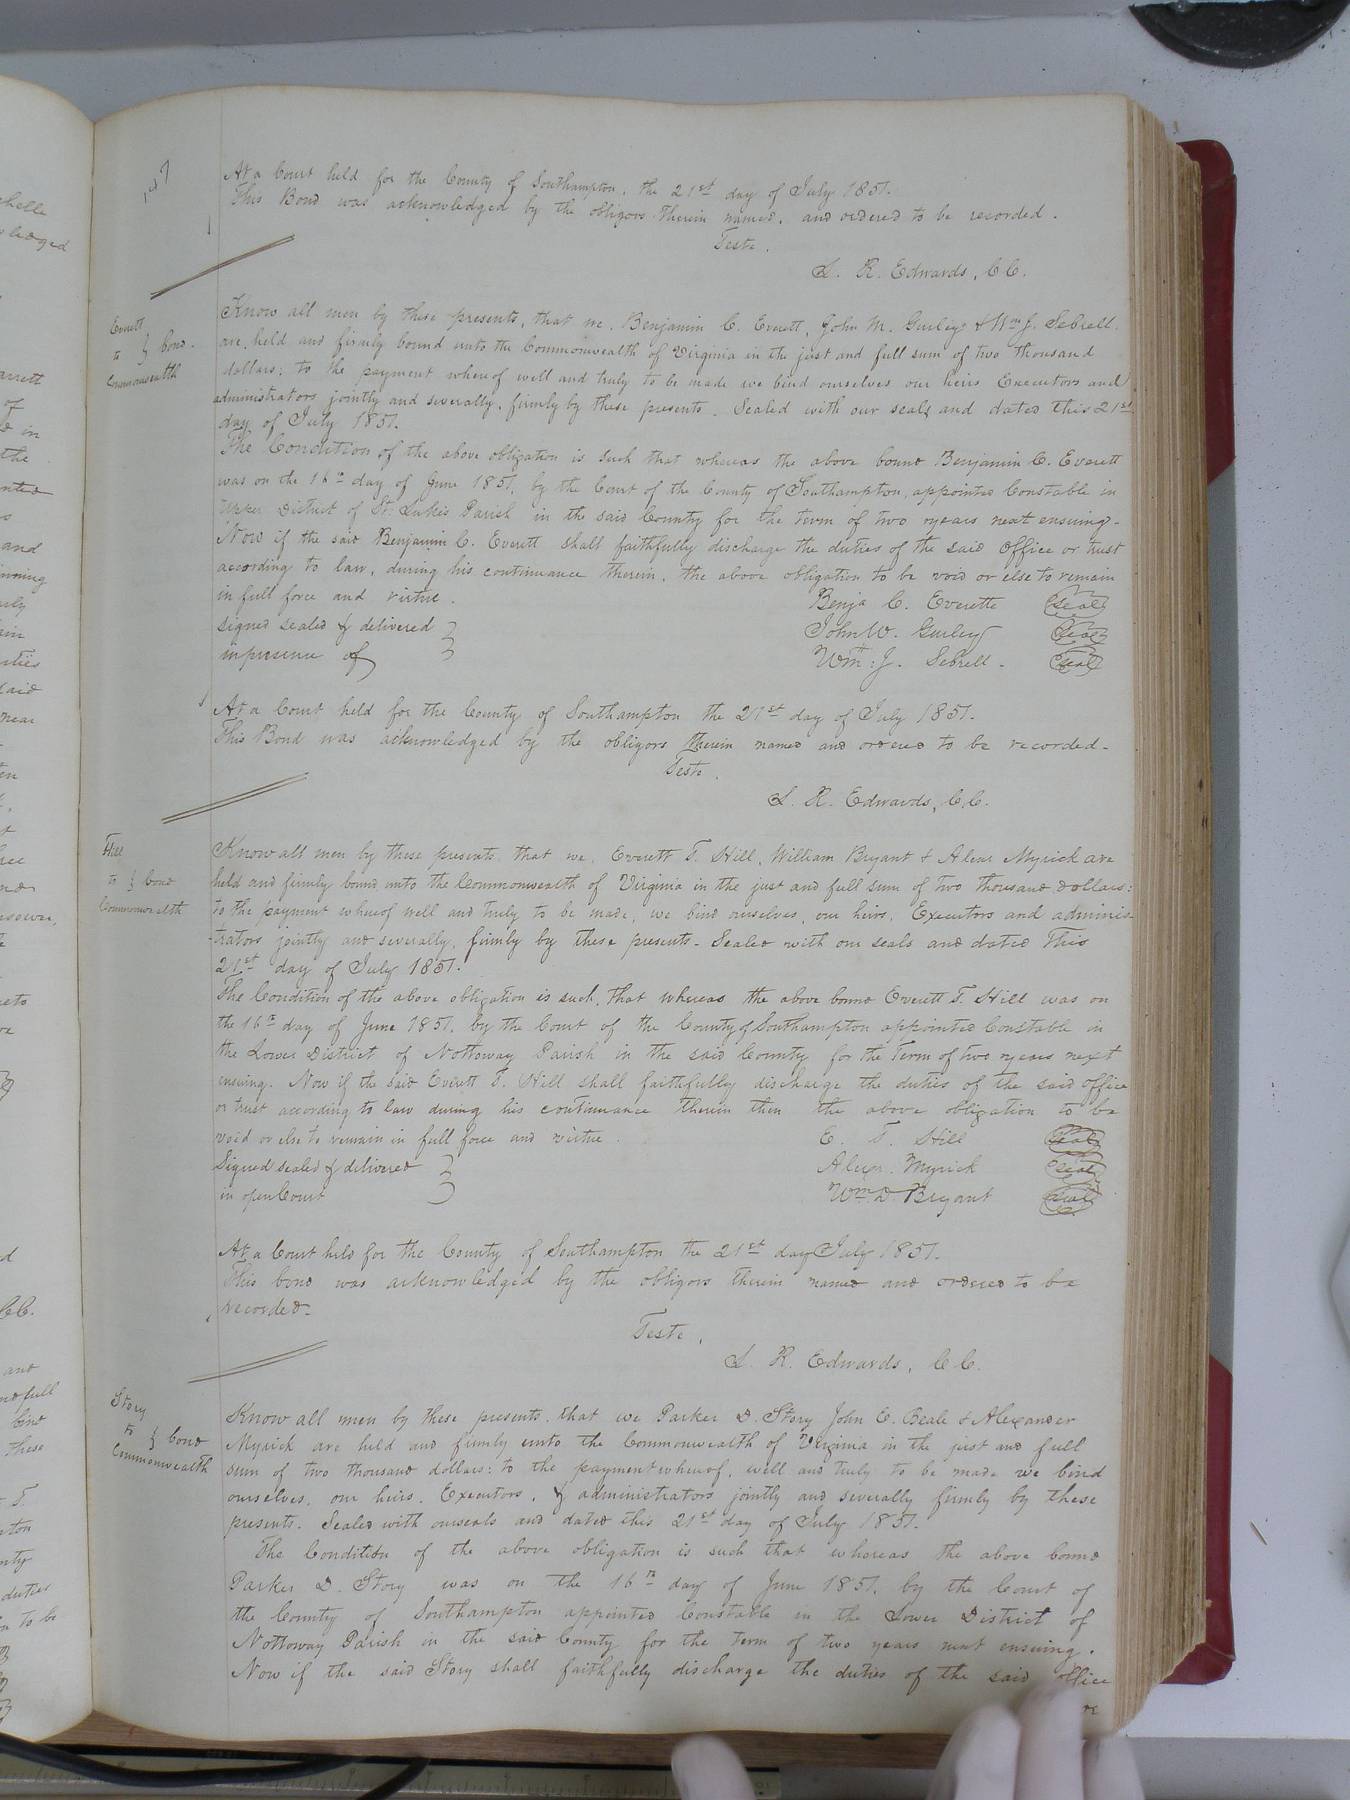 At a Court held for the County of Southampton, the 21st day of July 1851.
This Bond was acknowledged by the obligors therein named, and ordered to be recorded.
Teste.
L. R. Edwards, C.C.
Everett
to } bond.
Commonwealth
Know all men by these presents, that we, Benjamin C. Everett, John M. Gurley & Wm J. Sebrell.
are, held and firmly bound unto the Commonwealth of Virginia in the just and full sum of two thousand
dollars; to the payment whereof well and truly to be made we bind ourselves our heirs Executors and
administrators jointly and severally, firmly by these presents. Sealed with our seals and dated this 21st
day of July 1851.
The Condition of the above obligation is such that whereas the above bound Benjamin C. Everett
was on the 16th day of June 1851, by the Court of the County of Southampton, appointed Constable in
Upper District of St. Lukes Parish in the said County for the term of two years next ensuing.
Now if the said Benjamin C. Everett shall faithfully discharge the duties of the said office or trust
according to law, during his continuance therein, the above obligation to be void or else to remain
in full force and virtue.
Benja C. Everette seal
signed sealed & delivered }
John W. Gurley seal
in presence of
Wm. J. Sebrell. seal
At a Court held for the County of Southampton the 21st day of July 1851.
This Bond was acknowledged by the obligors therein named and ordered to be recorded.
Teste.
L. R. Edwards, C.C.
Hill
to } bond
Commonwealth
Know all men by these presents, that we, Everett T. Hill, William Bryant & Alexr Myrick are
held and firmly bound unto the Commonwealth of Virginia in the just and full sum of two thousand dollars:
to the payment whereof well and truly to be made, we bind ourselves, our heirs, Executors and adminis-
-trators jointly and severally, firmly by these presents. Sealed with our seals and dated this
21st day of July 1851.
The Condition of the above obligation is such, that whereas the above bound Everett T. Hill was on
the 16th day of June 1851, by the Court of the County of Southampton appointed Constable in
the Lower District of Nottoway Parish in the said County for the Term of two years next
ensuing. Now if the said Everett T. Hill shall faithfully discharge the duties of the said office
or trust according to law during his continuance therein then the above obligation to be
void or else to remain in full force and virtue.
E. T. Hill seal
Signed sealed & delivered }
Alexr. Myrick seal
in open Court
Wm D. Bryant seal
At a Court held for the County of Southampton the 21st day July 1851.
This bond was acknowledged by the obligors therein named and ordered to be
recorded.
Teste,
L. R. Edwards, C.C.
Story
to } bond
Commonwealth
Know all men by these presents, that we Parker D. Story John E. Beale & Alexander
Myrick are held and firmly unto the Commonwealth of Virginia in the just and full
sum of two thousand dollars: to the payment whereof, well and truly to be made we bind
ourselves, our heirs, Executors, & administrators jointly and severally firmly by these
presents. Sealed with our seals and dated this 21st day of July 1851.
The Condition of the above obligation is such that whereas the above bound
Parker D. Story was on the 16th day of June 1851, by the Court of
the County of Southampton appointed Constable in the Lower District of
Nottoway Parish in the said County for the term of two years next ensuing.
Now if the said Story shall faithfully discharge the duties of the said office